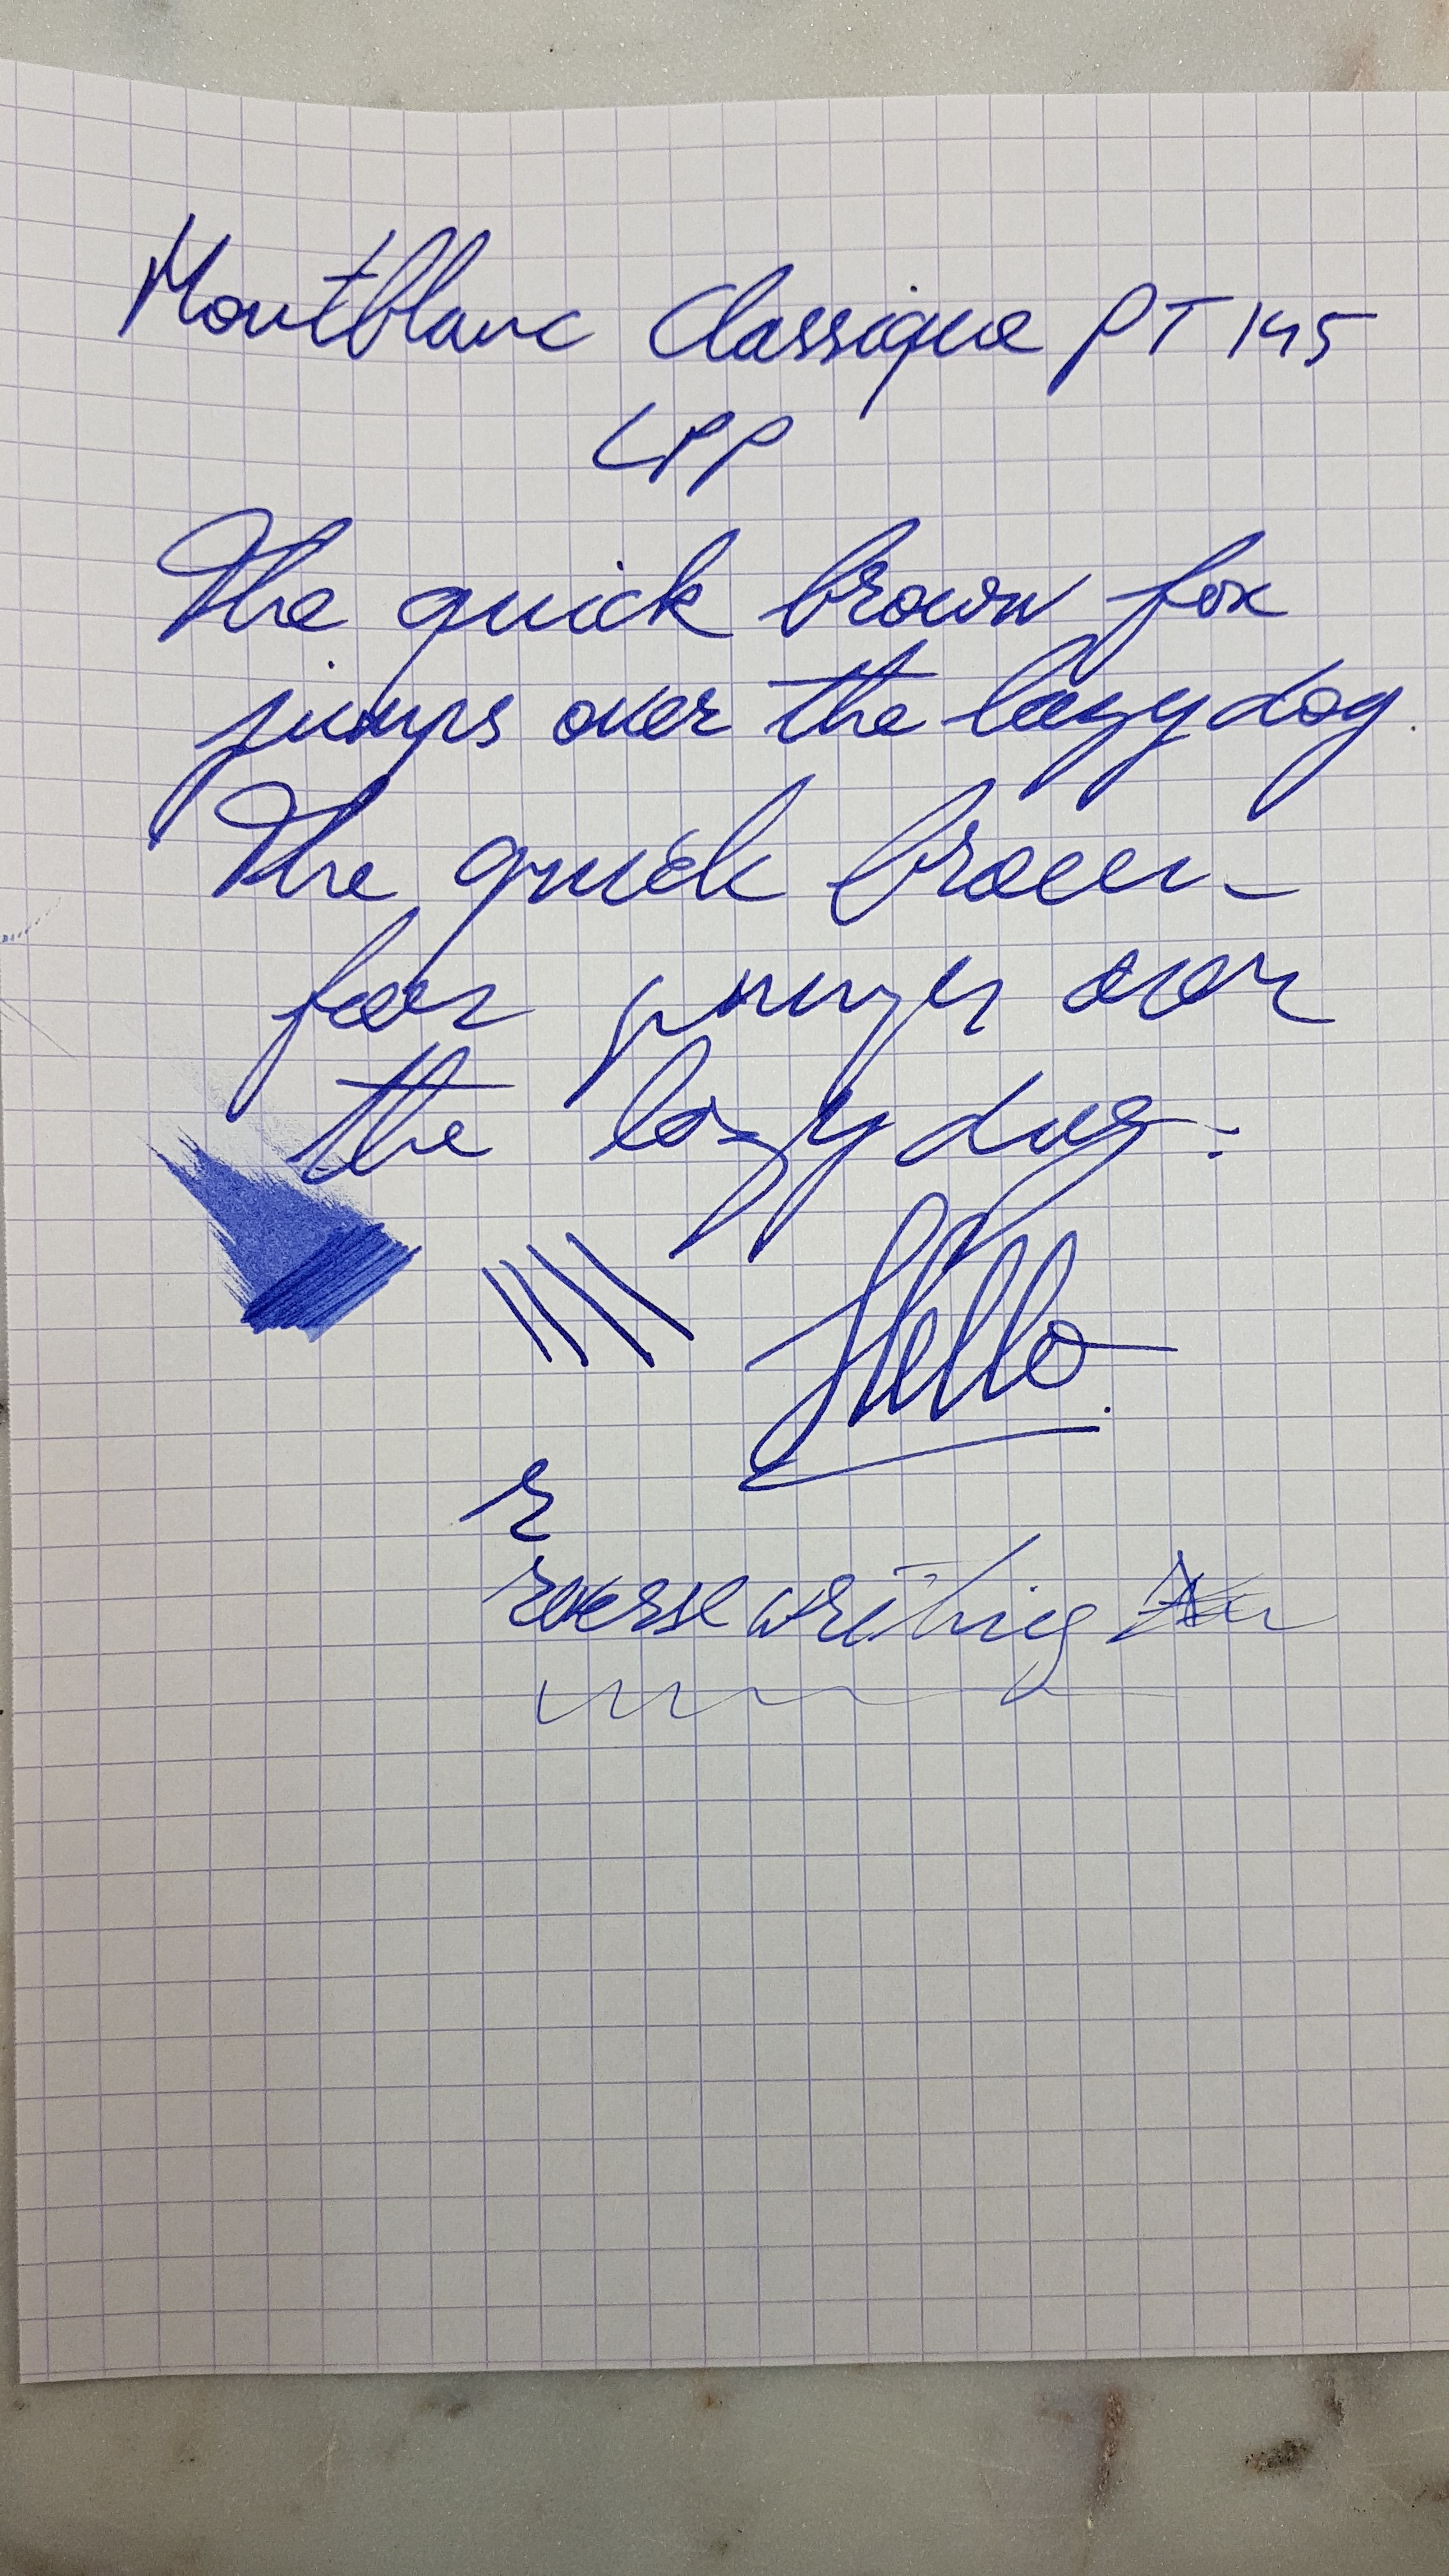 Montblanc Classique PT 145
LPP
The quick brown fox
jumps over the lazy dog.
The quick brown
fox jumps over
the lazy dog.
Hello.
r
reverse writing